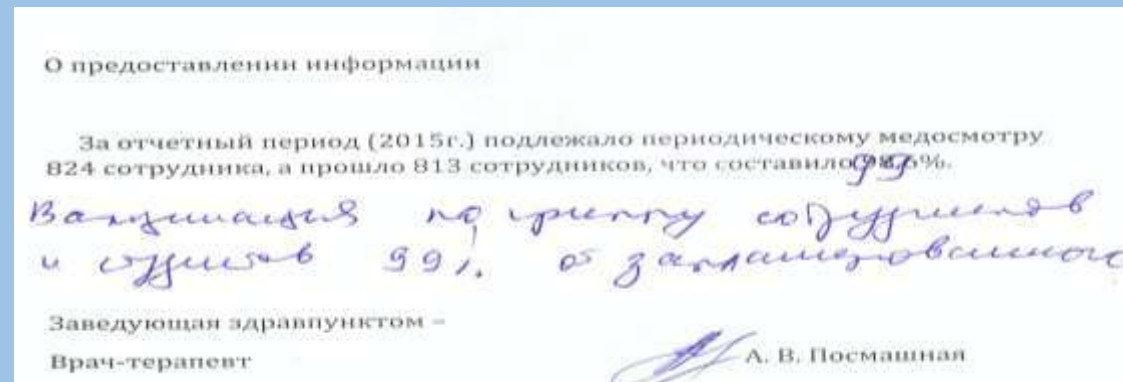 О предоставлении информации
За отчетный период (2015г.) подлежало периодическому медосмотру
824 сотрудника, а прошло 813 сотрудников, что составило 99%.
Вакцинация по гриппу сотрудников
и студентов 99% от запланированного
Заведующая здравпунктом –
Врач-терапевт
А. В. Посмашная